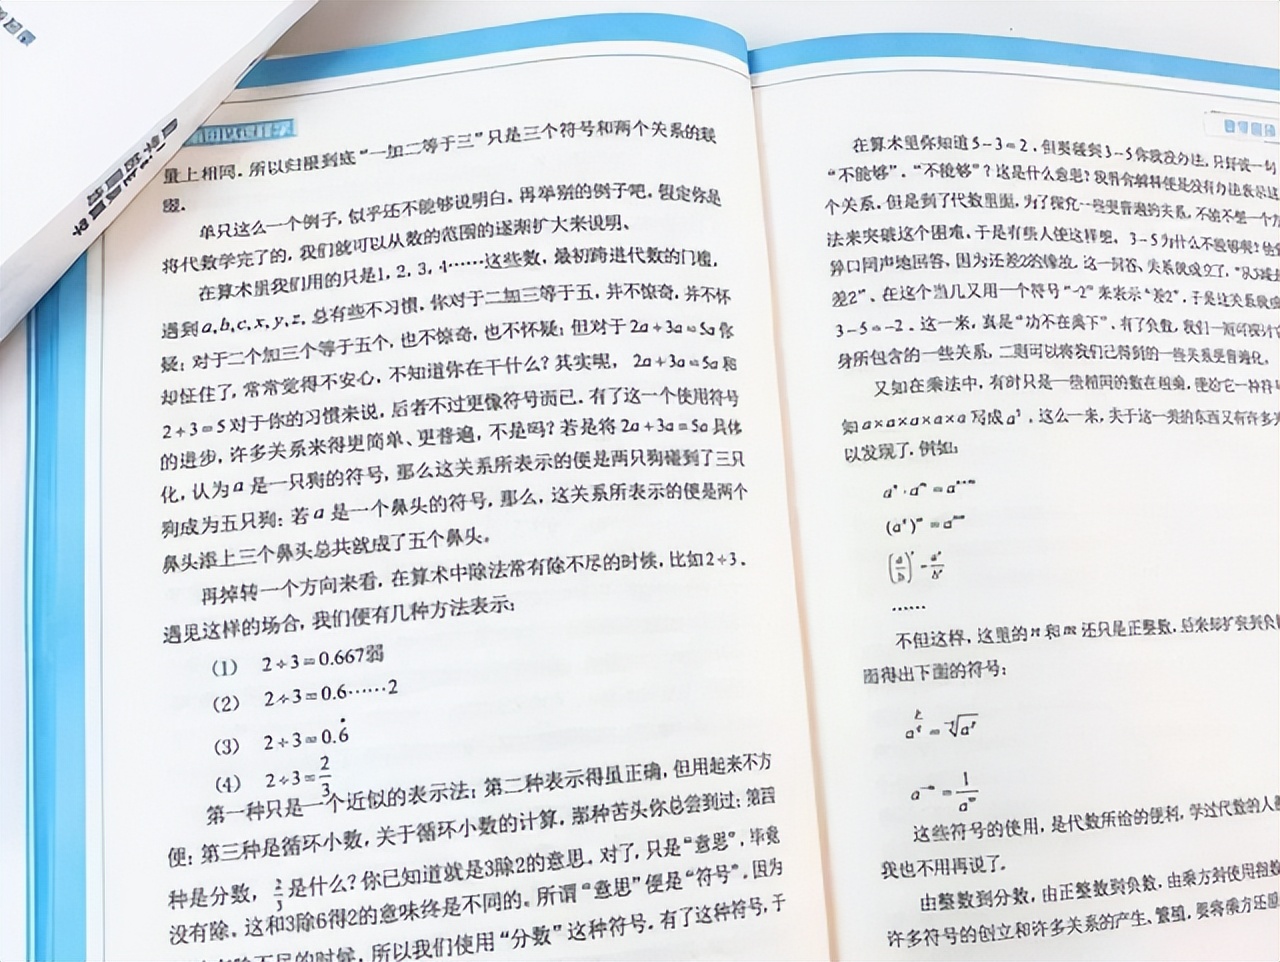 量上相同。所以归根到底“一加二等于三”只是三个符号和两个关系的联
缀。
单只这么一个例子，似乎还不能够说明白。再举别的例子吧，假定你是
将代数学完了的，我们就可以从数的范围的逐渐扩大来说明。
在算术里我们用的只是1，2，3，4……这些数，最初跨进代数的门槛，
遇到a,b,c,x,y,z，总有些不习惯，你对于二加三等于五，并不惊奇，并不怀
疑；对于二个加三个等于五个，也不惊奇，也不怀疑；但对于2a+3a=5a你
却怔住了，常常觉得不安心，不知道你在干什么？其实呢，2a+3a=5a和
2+3=5对于你的习惯来说，后者不过更像符号而已。有了这一个使用符号
的进步，许多关系来得更简单、更普遍，不是吗？若是将2a+3a=5a具体
化，认为a是一只狗的符号，那么这关系所表示的便是两只狗碰到了三只
狗成为五只狗；若a是一个鼻头的符号，那么，这关系所表示的便是两个
鼻头添上三个鼻头总共就成了五个鼻头。
再掉转一个方向来看，在算术中除法常有除不尽的时候，比如2÷3。
遇见这样的场合，我们便有几种方法表示：
（1） 2÷3=0.667弱
（2） 2÷3=0.6……2
（3） 2÷3=0.6̇
（4） 2÷3=2/3
第一种只是一个近似的表示法；第二种表示得虽正确，但用起来不方
便；第三种是循环小数，关于循环小数的计算，那种苦头你总尝到过；第四
种是分数，2/3是什么？你已知道就是3除2的意思。对了，只是“意思”，毕竟
没有除。这和3除6得2的意味终是不同的。所谓“意思”便是“符号”。因为
除不尽的时候，所以我们使用“分数”这种符号。有了这种符号，于
在算术里你知道5-3=2，但要碰到3-5你就没办法，只好说一句
“不能够”。“不能够”？这是什么意思？我
个关系。但是到了代数里面，为了探究一些更普遍的关系，不能不想一个方
法来突破这个困难。于是有些人便这样想，3-5为什么不能够呢？
异口同声地回答，因为还差2的缘故。这一回答，关系就成立了，“从3减去
差2”。在这个当儿又用一个符号“-2”来表示“差2”，于是这关系就成
3-5=-2。这一来，真是“功不在禹下”。有了负数，我们一则可探讨它
身所包含的一些关系，二则可以将我们已得到的一些关系更普遍化。
又如在乘法中，有时只是一些相同的数在相乘，便给它一种符号
如a×a×a×a×a写成a⁵，这么一来，关于这一类的东西又有许多关
以发现了。例如：
aⁿ·aᵐ=aⁿ⁺ᵐ
(aⁿ)ᵐ=aⁿᵐ
(a/b)ⁿ=aⁿ/bⁿ
……
不但这样，这里的n和m还只是正整数，后来却扩张到负
而得出下面的符号：
a^(p/q)=q√aᵖ
a⁻ᵐ=1/aᵐ
这些符号的使用，是代数所给的便利，学过代数的人
我也不用再说了。
由整数到分数，由正整数到负数，由乘方到使用指数
许多符号的创立和许多关系的产生、繁殖，要将乘方还原